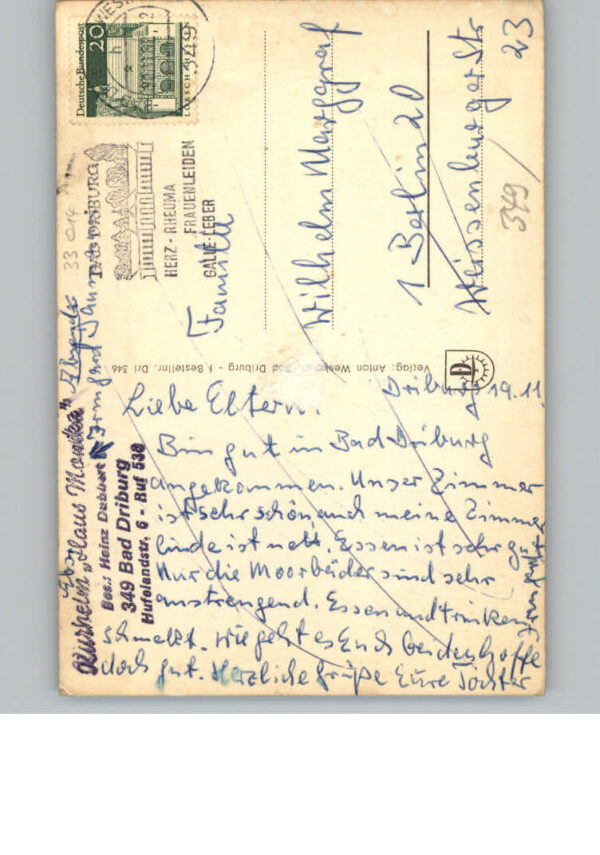 Deutsche Bundespost
20
LORSCH
349
BAD DRIBURG
HERZ - RHEUMA
FRAUENLEIDEN
GALLE-LEBER
33 014
Familie
Wilhelm Marggraf
1 Berlin 20
Weissenburger Str
23
349/
Verlag: Anton Bad Driburg - f Bestellnr. Dri 346
D
Driburg 19.11.
Liebe Eltern!
Bin gut in Bad Driburg
angekommen. Unser Zimmer
ist sehr schön, und meine Zimmer
linde ist nett. Essen ist sehr gut
Nur die Moorbäder sind sehr
anstrengend. Essen und trinken
schmeckt. Wie geht es Euch beiden, hoffe
doch gut. Herzliche Grüße Eure Tochter
Irmgard
Kurheim „Haus Monika"
Bes.: Heinz Dubbert
349 Bad Driburg
Hufelandstr. 6 - Ruf 538
Irmgard